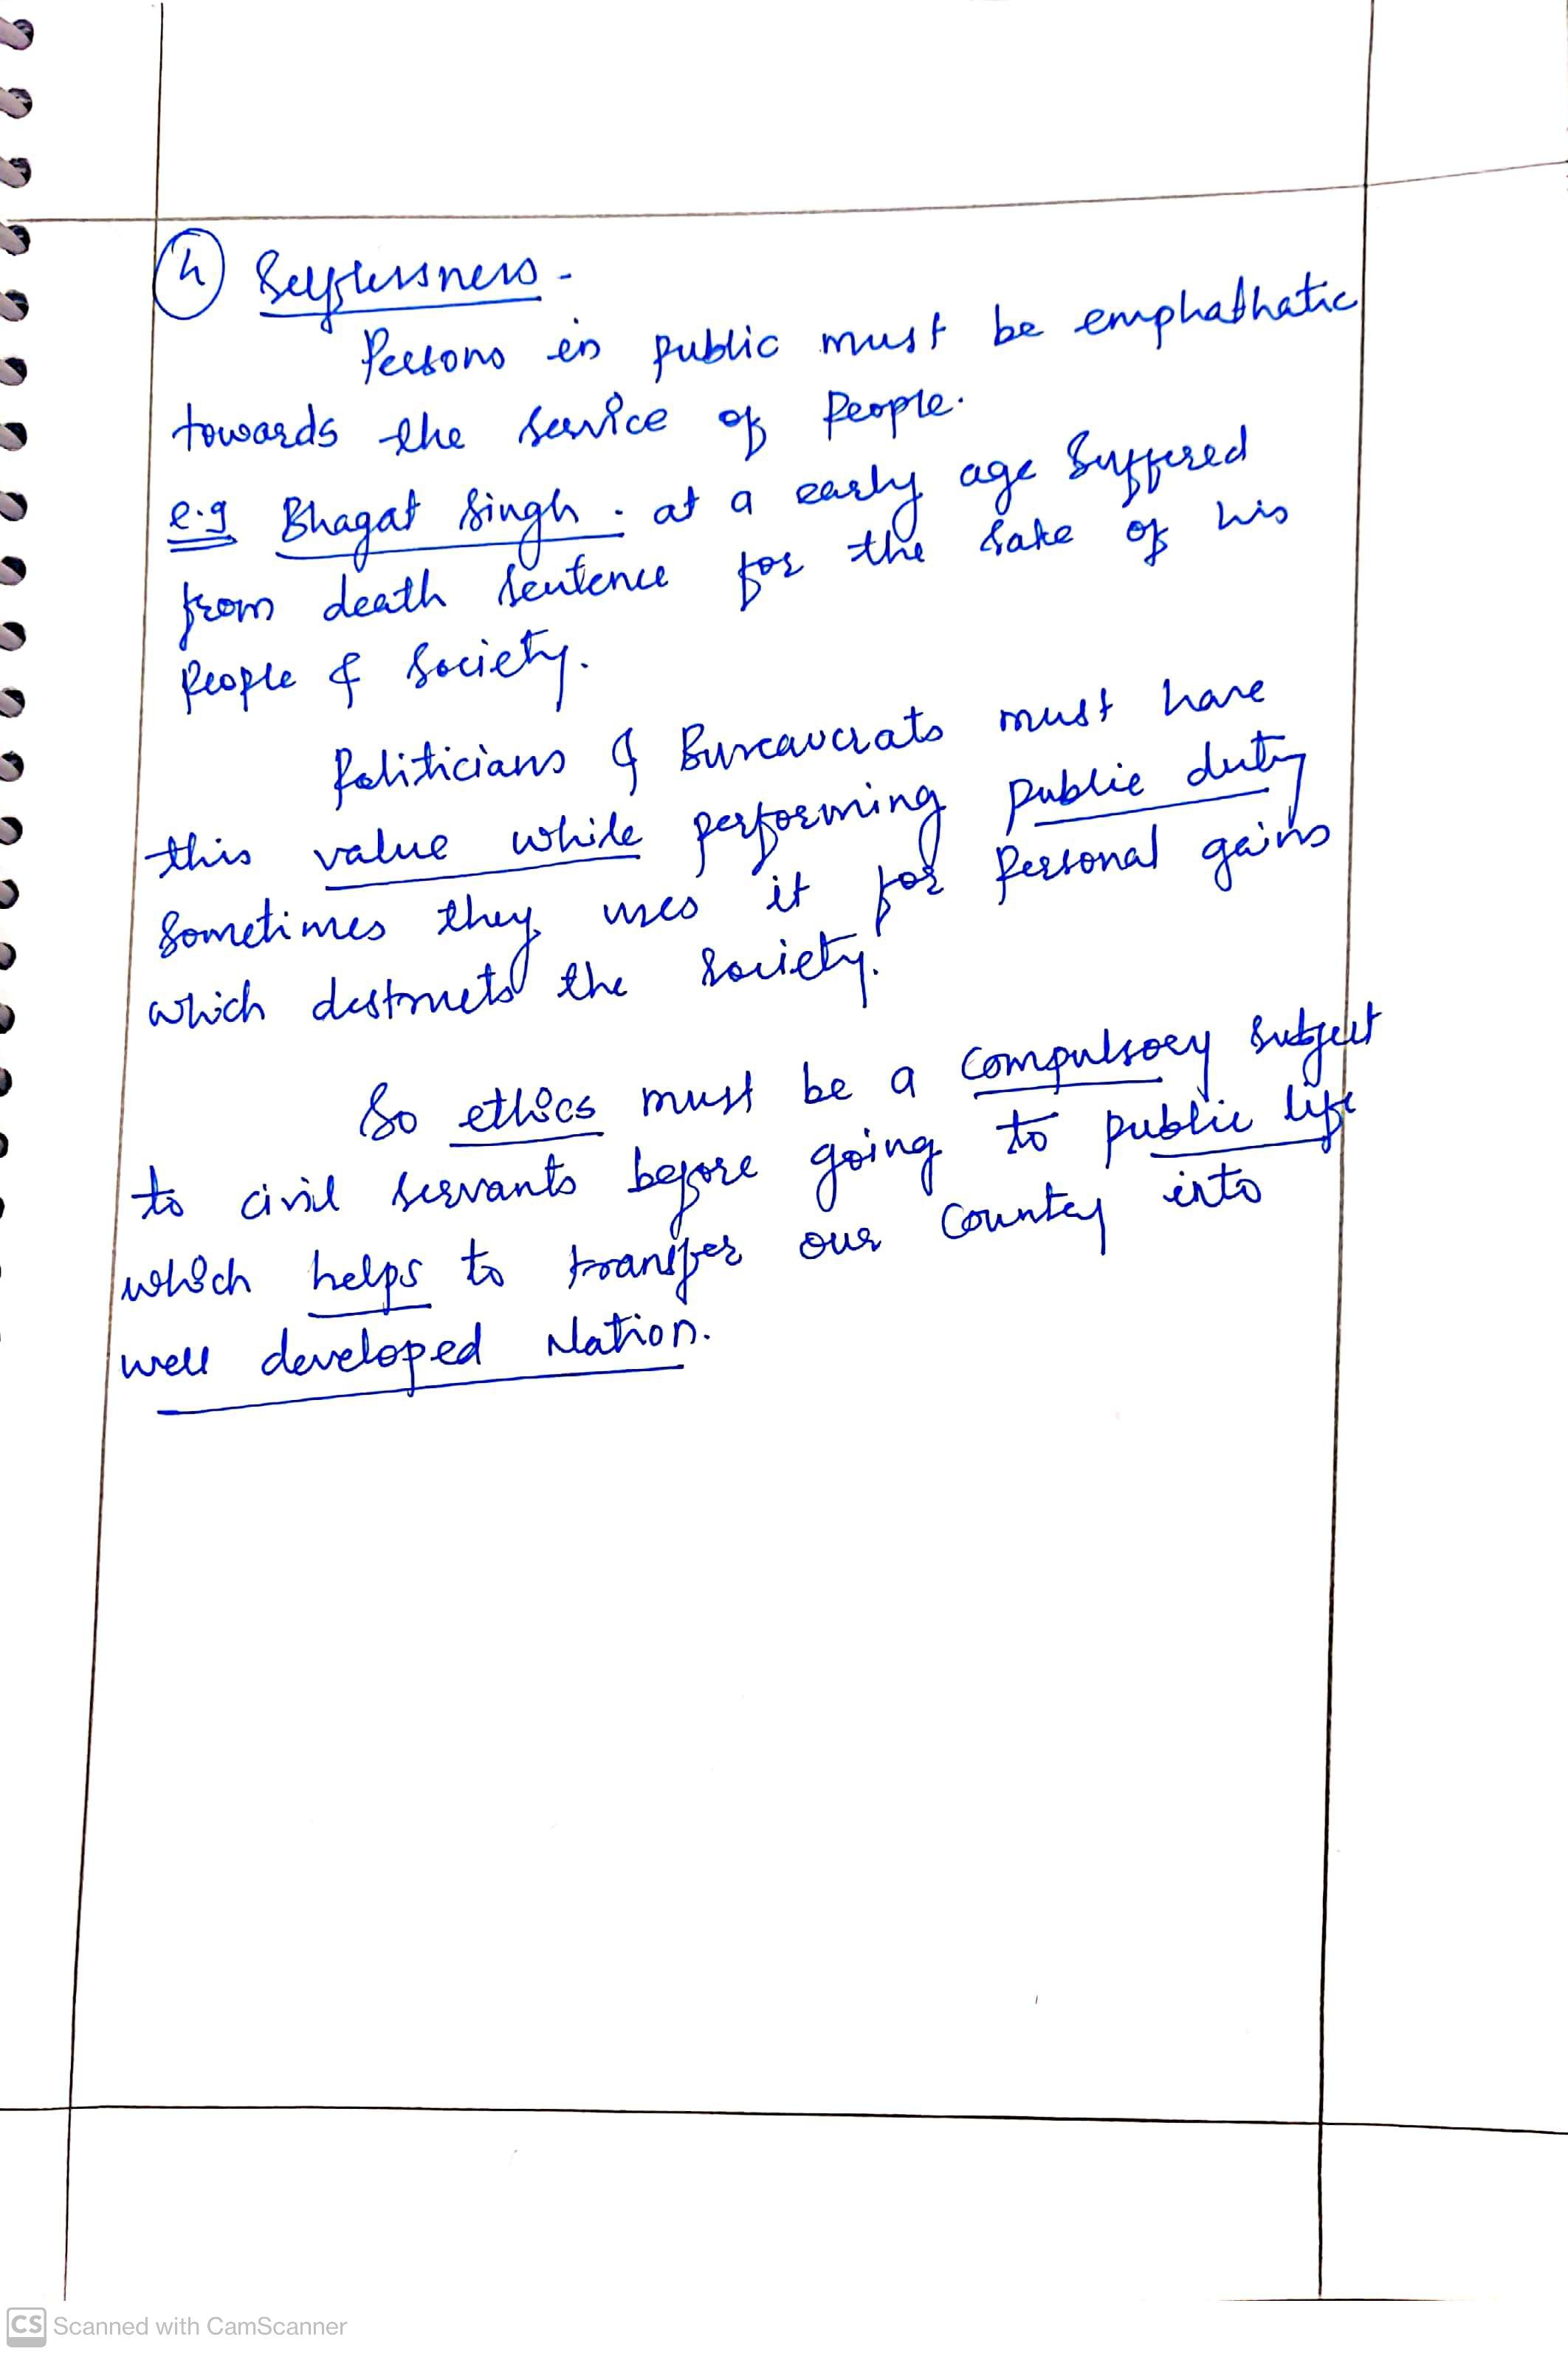 4 Selflessness -
Persons in public must be emphathatic
towards the service of People.
e.g Bhagat Singh. at a early age Suffered
from death sentence for the sake of his
People & Society.
Politicians & Bureaucrats must have
this value while performing public duty
Sometimes they uses it for Personal gains
which destructs the society.
So ethics must be a compulsory subject
to civil servants before going to public life
which helps to transfer our Country into
well developed Nation.
CS Scanned with CamScanner